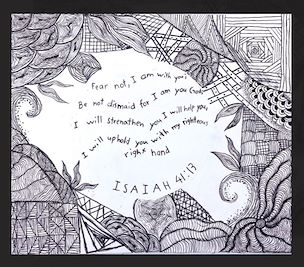 Fear not, I am with you;
Be not dismaid for I am you God;
I will strengthen you, I will help you,
I will uphold you with my righteous
right hand
ISAIAH 41:13